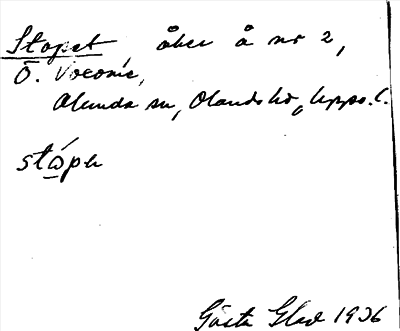 Stopet, åker å nr 2,
Ö. Vocome,
Alunda sn, Olands hd, Upps. l.
stópə
Gösta Glad 1936